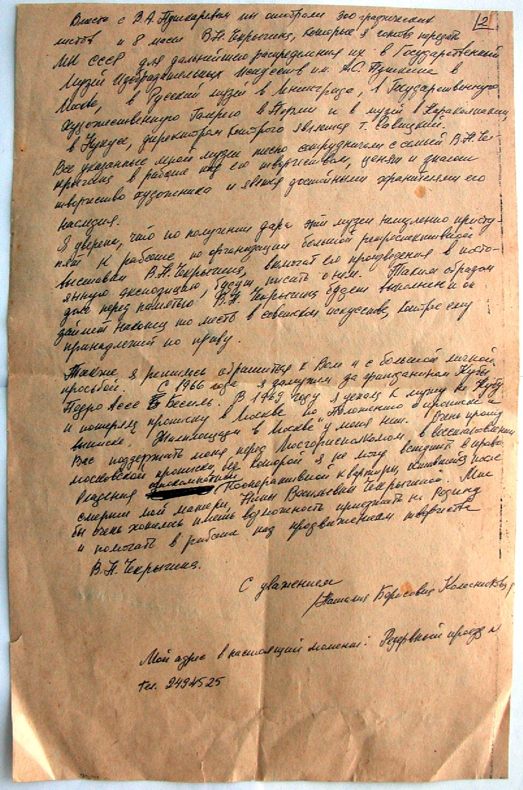 2
Вместе с В.А. Пушкаревым мы смотрели 300 графических
листов и 8 масел В.Н. Чекрыгина, которые я готова передать
МК СССР для дальнейшего распределения их в Государственный
Музей Изобразительных Искусств им. А.С. Пушкина в
Москве, в Русский музей в Ленинграде, в Государственную
художественную Галерею в Перми и в музей в Каракалпакии,
в Нукусе, директором которого является т. Савицкий.
Все указанные мной музеи тесно сотрудничали с семьей В.Н. Че-
крыгина в работе над его творчеством, ценят и знают
творчество художника и являются достойными хранителями его
наследия.
Я уверена, что по получении дара эти музеи немедленно присту-
пят к работе по организации большой ретроспективной
выставки В.Н. Чекрыгина, включат его произведения в посто-
янную экспозицию, будут писать о нем. Таким образом
долг перед памятью В.Н. Чекрыгина будет выполнен и он
займет наконец то место в советском искусстве, которое ему
принадлежит по праву.
Также я решилась обратиться к Вам и с большой личной
просьбой. С 1966 года я замужем за гражданином Кубы
Педро Ассе Бесиль. В 1969 году я уехала к мужу на Кубу
и потеряла прописку в Москве по "Положению о прописке и
выписке". Жилплощади в Москве у меня нет. Очень прошу
Вас поддержать меня перед Мосгорисполкомом, в восстановлении
московской прописки, без которой я не могу вступить в права
владения кооперативной квартиры, оставшейся после
смерти моей матери, Нины Васильевны Чекрыгиной. Мне
бы очень хотелось иметь возможность приезжать на Родину
и помогать в работе над продвижением творчества
В.Н. Чекрыгина.
С уважением
Наталия Борисовна Колесникова
Мой адрес в настоящий момент: Резервный проезд
тел. 2494525